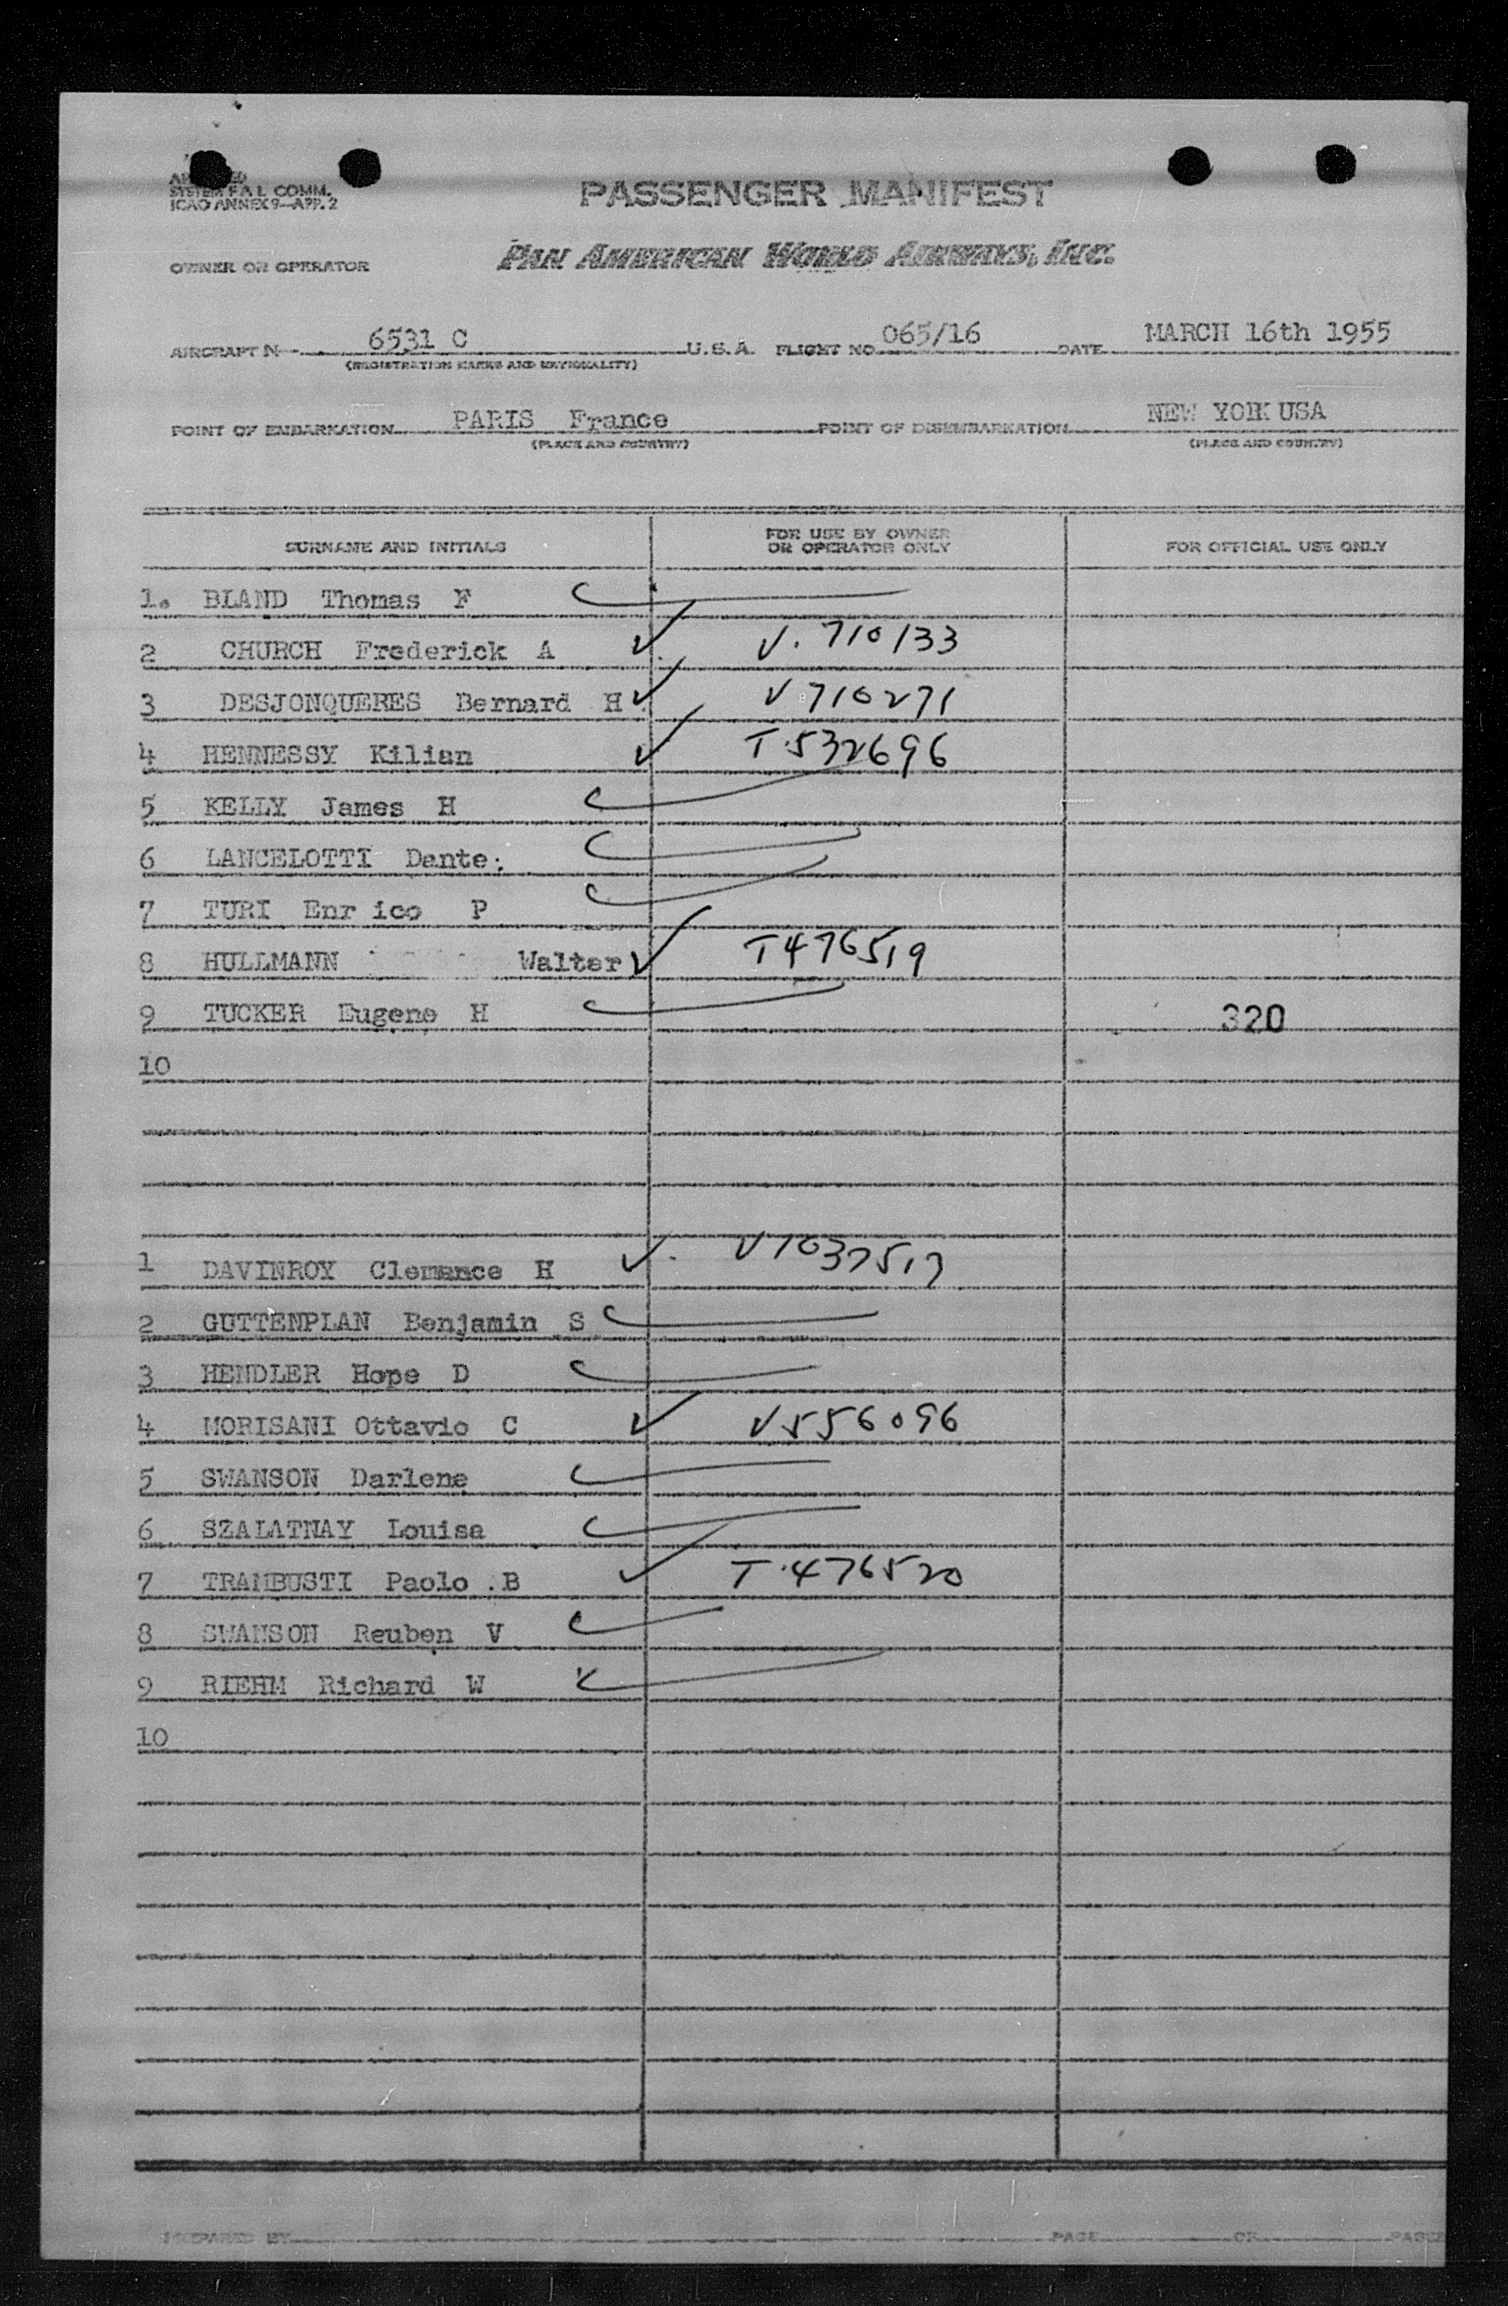 SYSTEM F A L COMM.
ICAO ANNEX 9—APP. 2
PASSENGER MANIFEST
OWNER OR OPERATOR PAN AMERICAN WORLD AIRWAYS, INC.
AIRCRAFT N 6531 C U.S.A. FLIGHT NO. 065/16 DATE MARCH 16th 1955
(REGISTRATION MARKS AND NATIONALITY)
POINT OF EMBARKATION PARIS France POINT OF DISEMBARKATION NEW YORK USA
(PLACE AND COUNTRY) (PLACE AND COUNTRY)
SURNAME AND INITIALS FOR USE BY OWNER OR OPERATOR ONLY FOR OFFICIAL USE ONLY
1. BLAND Thomas F
2 CHURCH Frederick A V. 710133
3 DESJONQUERES Bernard H V 710271
4 HENNESSY Kilian T. 532696
5 KELLY James H
6 LANCELOTTI Dante.
7 TURI Enr ico P
8 HULLMANN Walter T476519
9 TUCKER Eugene H 320
10
1 DAVINROY Clemance H V1037517
2 GUTTENPLAN Benjamin S
3 HENDLER Hope D
4 MORISANI Ottavio C V556096
5 SWANSON Darlene
6 SZALATNAY Louisa
7 TRAMBUSTI Paolo .B T.476520
8 SWANSON Reuben V
9 RIEHM Richard W
10
PREPARED BY PAGE OF PAGES